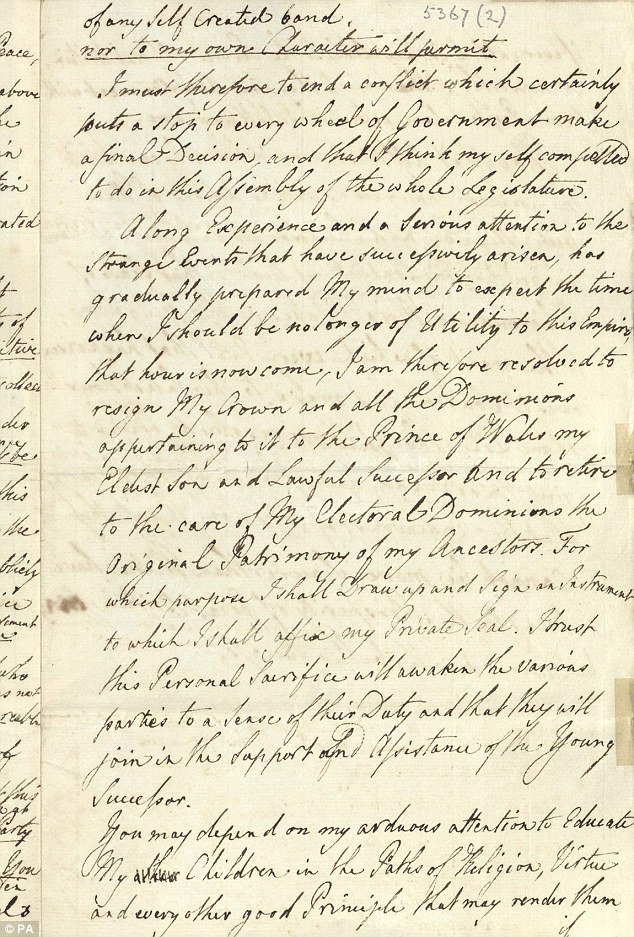 of any self Created band.
5367 (2)
nor to my own Character will permit
I must therefore to end a conflict which certainly
puts a stop to every wheel of Government make
a final Decision, and that I think my self compelled
to do in this Assembly of the whole Legislature.
A long Experience and a serious attention to the
Strange Events that have successively arisen, has
gradually prepared My mind to expect the time
when I should be no longer of Utility to this Empire,
that hour is now come, I am therefore resolved to
resign My Crown and all the Dominions
appertaining to it to the Prince of Wales my
Eldest Son and Lawful Successor and to retire
to the care of My Electoral Dominions the
Original Patrimony of my Ancestors. For
which purpose I shall Draw up and Sign an Instrument
to which I shall affix my Private Seal. I trust
this Personal Sacrifice will awaken the various
parties to a sense of their Duty and that they will
join in the Support and Assistance of the Young
Successor.
You may depend on my arduous attention to Educate
My Children in the Paths of Religion, Virtue
and every other good Principle that may render them
if
Peace,
above
in
ated
of
ctive
be
this
the
blicly
who
as not
of
this
Party
You
© PA